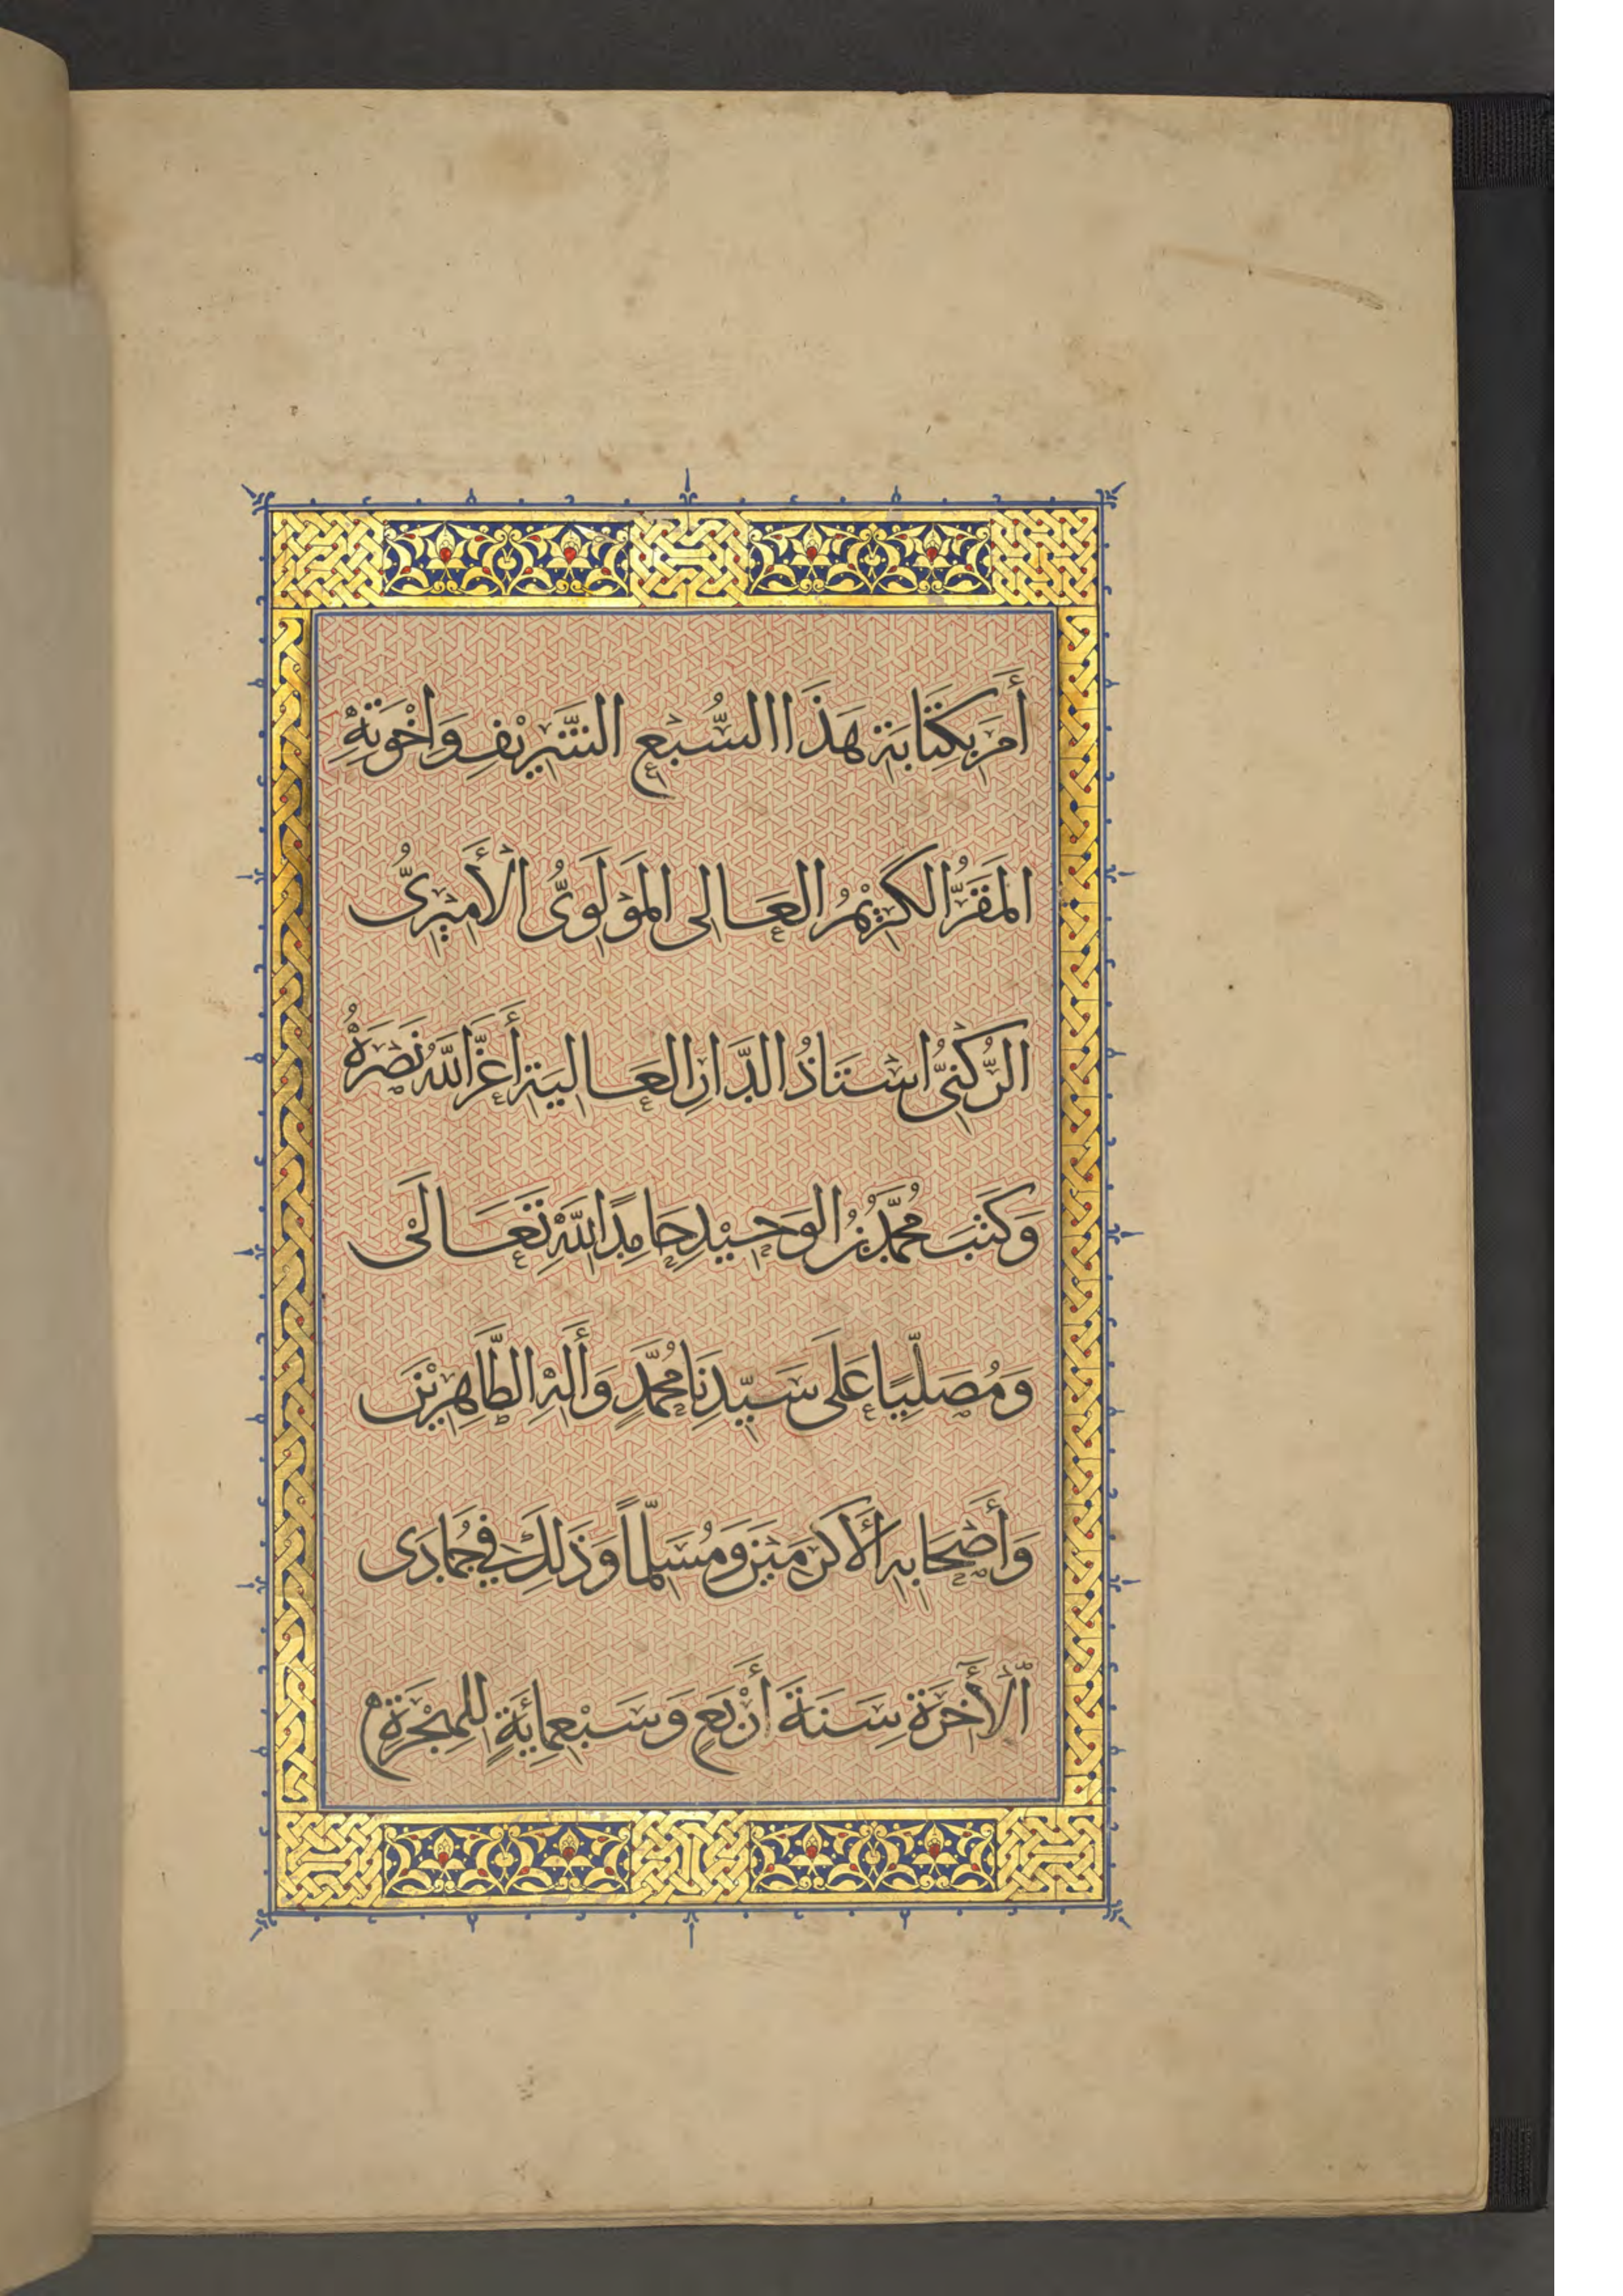 أَمَرَ بِكِتَابَةِ هَذَا السُّبعِ الشَّرِيْفِ وَاِخْوَتِهِ
المَقَرُّ الكَرِيْمُ العَالى المَوْلَوِىُّ الْأَمِيْرِىُّ
الرُّكْنِىُّ اسْتَاذُ الدَّارِ العَاليَةِ أَعَزَّ اللّهُ نَصْرَهُ
وَكَتَبَ مُحَمَّدُ بْنُ الوَحِيْدِ حَامِدًا لِلّهِ تَعَالَى
وَمُصَلِّيًا عَلَى سَيِّدِنَا مُحَمَّدٍ وَأَلِهِ الطَّاهِرِيْنَ
وَأَصْحَابِهِ الْأَكْرَمِيْنَ وَمُسَلِّمًا وَذَلِكَ فِي جُمَادَى
الْأَخِرَةِ سَنَةَ أَرْبَعٍ وَسَبْعِمِائَةٍ لِلهِجْرَةِ